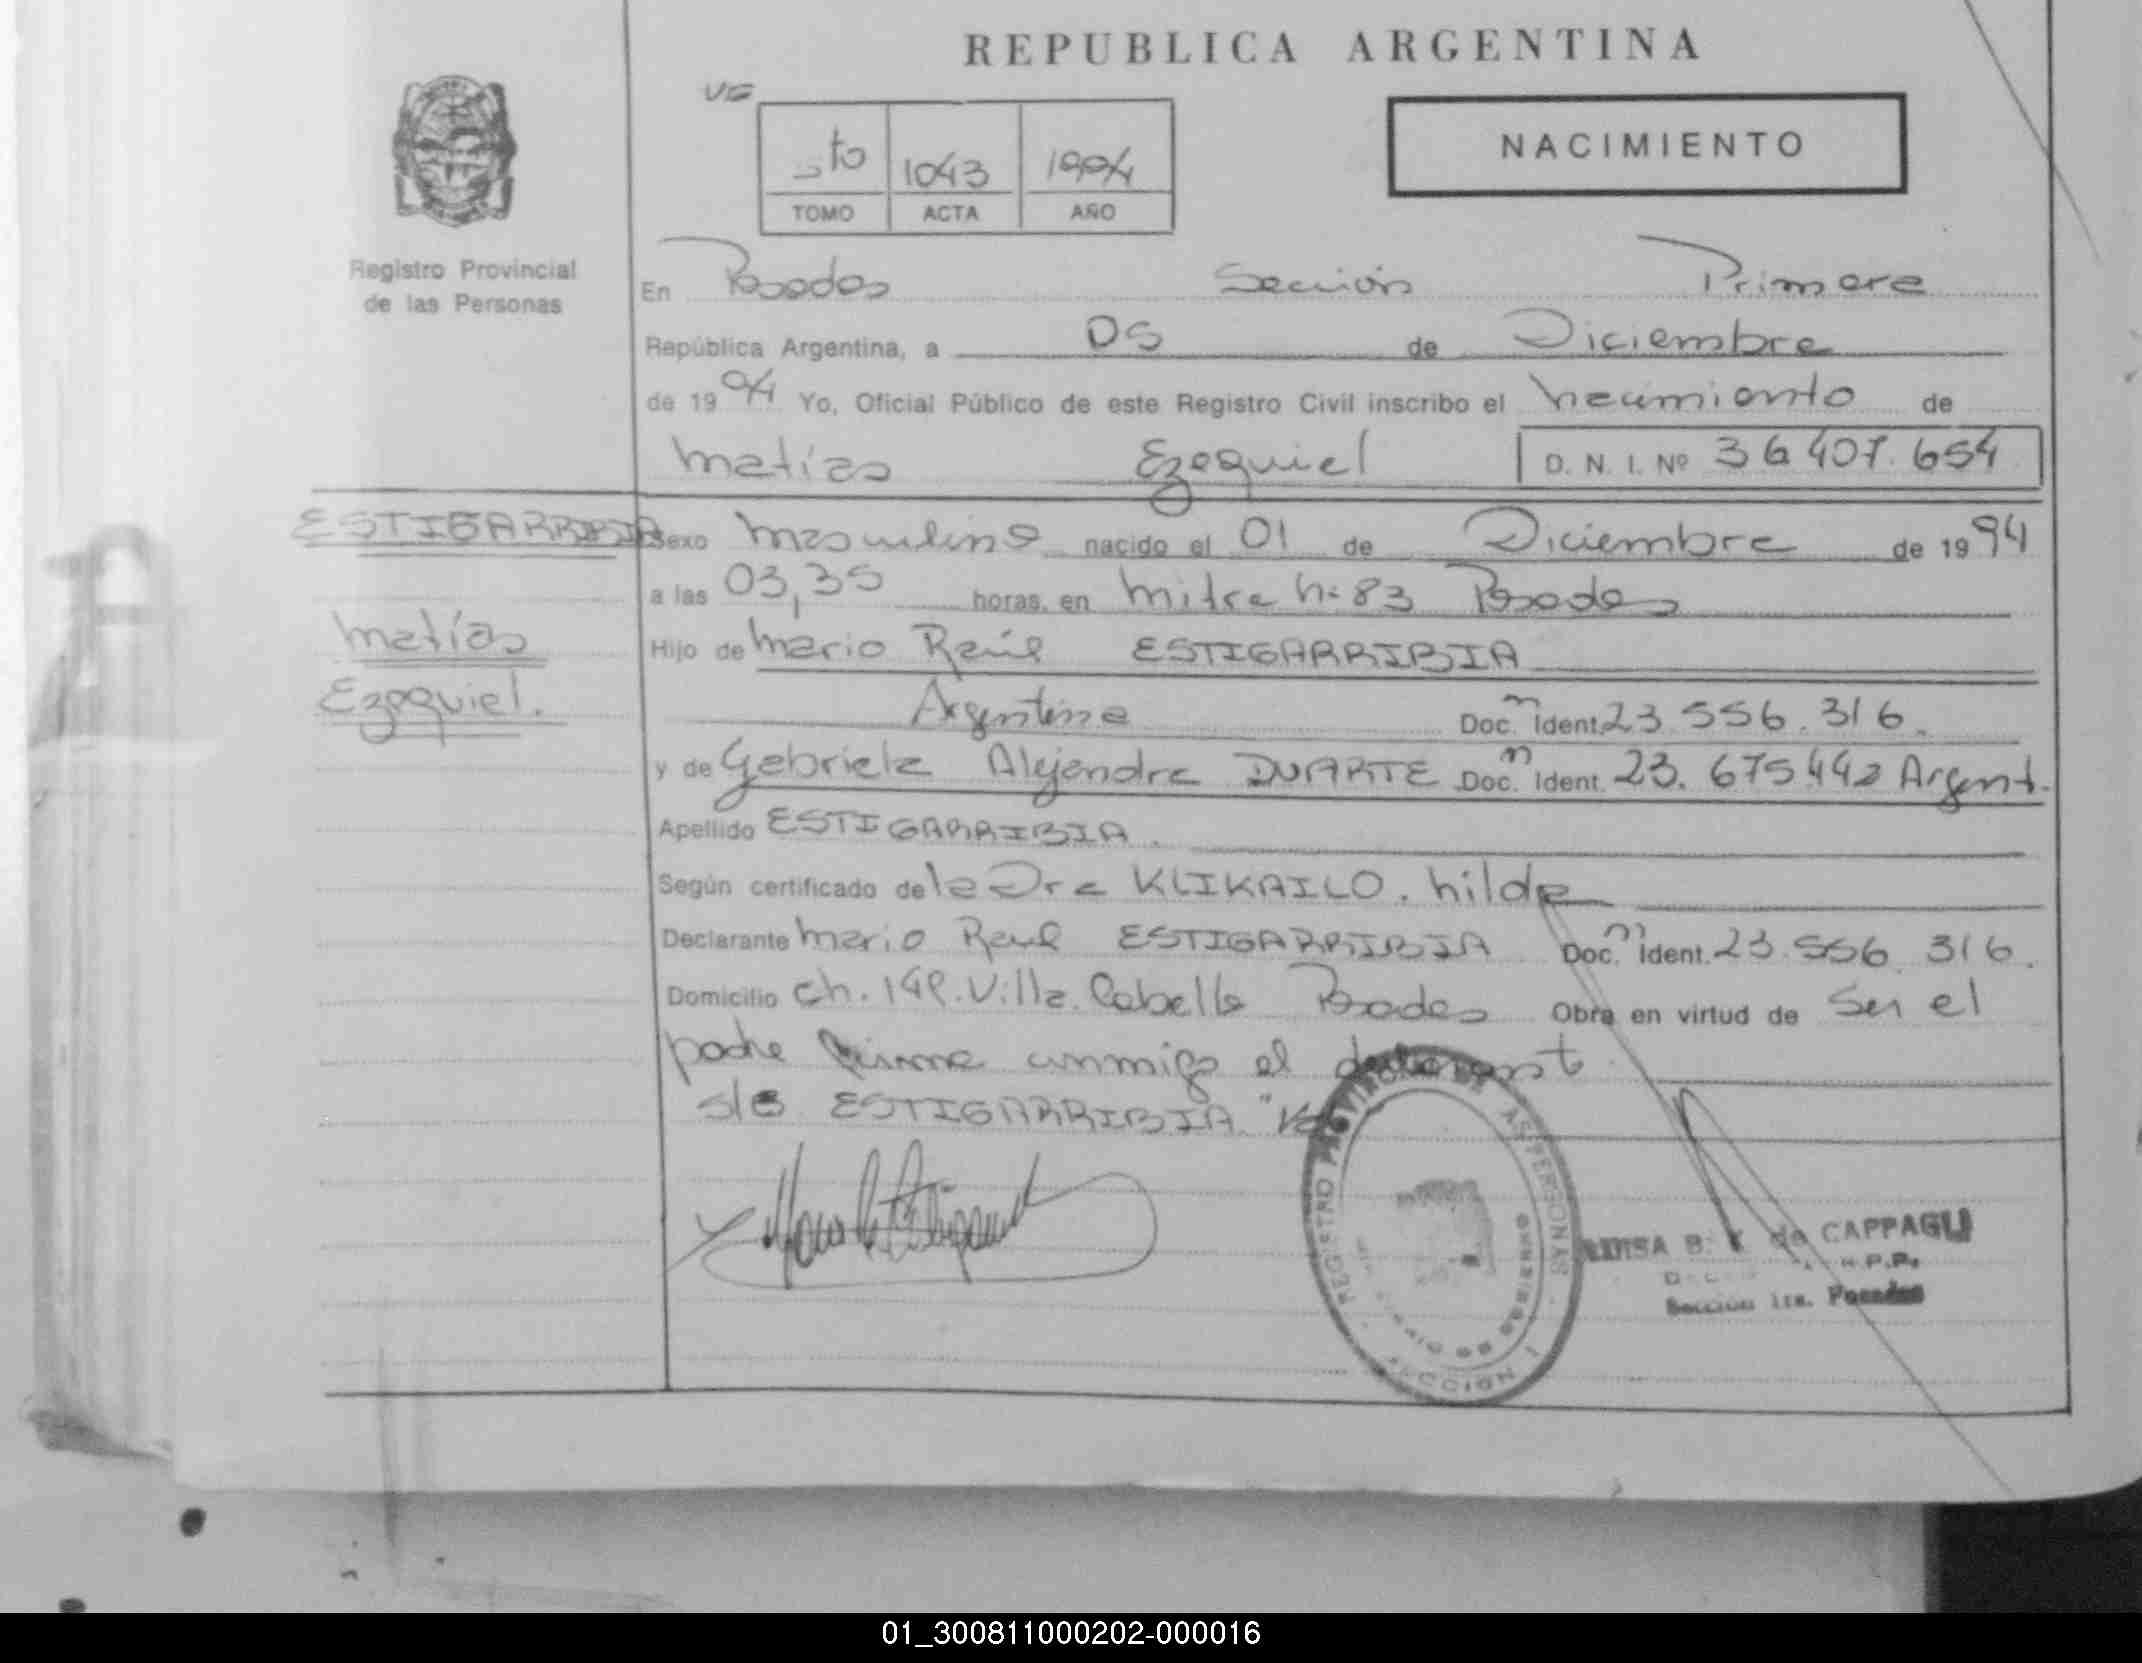 REPUBLICA ARGENTINA
NACIMIENTO
5to 1043 1994
TOMO ACTA AÑO
Registro Provincial
de las Personas
En Posadas Sección Primera
República Argentina, a 05 de Diciembre
de 1994 Yo, Oficial Público de este Registro Civil inscribo el nacimiento de
Matías Ezequiel D. N. I. Nº 36 407.654
ESTIGARRIBIA
Matías
Ezequiel.
Sexo Masculino nacido el 01 de Diciembre de 1994
a las 03,35 horas, en Mitre n: 83 Posadas
Hijo de Mario Raúl ESTIGARRIBIA
Argentina Doc. n Ident. 23.556.316.
y de Gabriela Alejandra DUARTE Doc. n Ident. 23.675.442 Argent.
Apellido ESTIGARRIBIA.
Según certificado de la Dra KLIKAILO. hilda
Declarante Mario Raul ESTIGARRIBIA Doc. n Ident. 23.556.316.
Domicilio Ch. 149. Villa. Cabello Posadas Obra en virtud de Ser el
padre firma conmigo el
ESTIGARRIBIA
REGISTRO PROVINCIAL DE LAS PERSONAS
SECCION 1
B. K de CAPPAGLI
Sección 1ra. Posadas
01_300811000202-000016